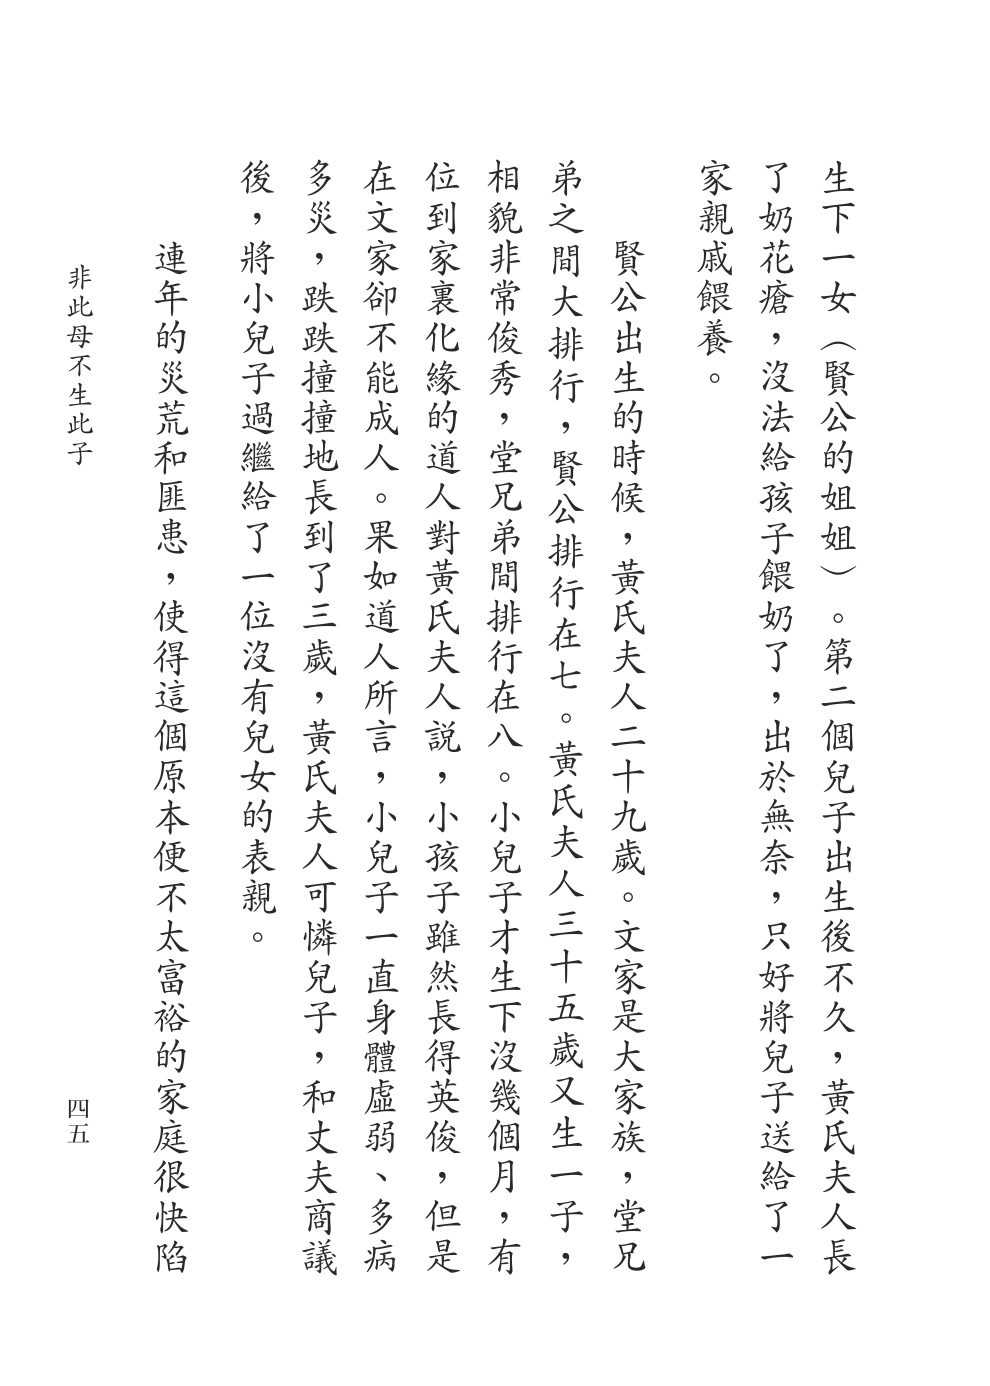 生下一女（賢公的姐姐）。第二個兒子出生後不久，黃氏夫人長
了奶花瘡，沒法給孩子餵奶了，出於無奈，只好將兒子送給了一
家親戚餵養。
賢公出生的時候，黃氏夫人二十九歲。文家是大家族，堂兄
弟之間大排行，賢公排行在七。黃氏夫人三十五歲又生一子，
相貌非常俊秀，堂兄弟間排行在八。小兒子才生下沒幾個月，有
位到家裏化緣的道人對黃氏夫人説，小孩子雖然長得英俊，但是
在文家卻不能成人。果如道人所言，小兒子一直身體虛弱、多病
多災，跌跌撞撞地長到了三歲，黃氏夫人可憐兒子，和丈夫商議
後，將小兒子過繼給了一位沒有兒女的表親。
連年的災荒和匪患，使得這個原本便不太富裕的家庭很快陷
非此母不生此子
四五